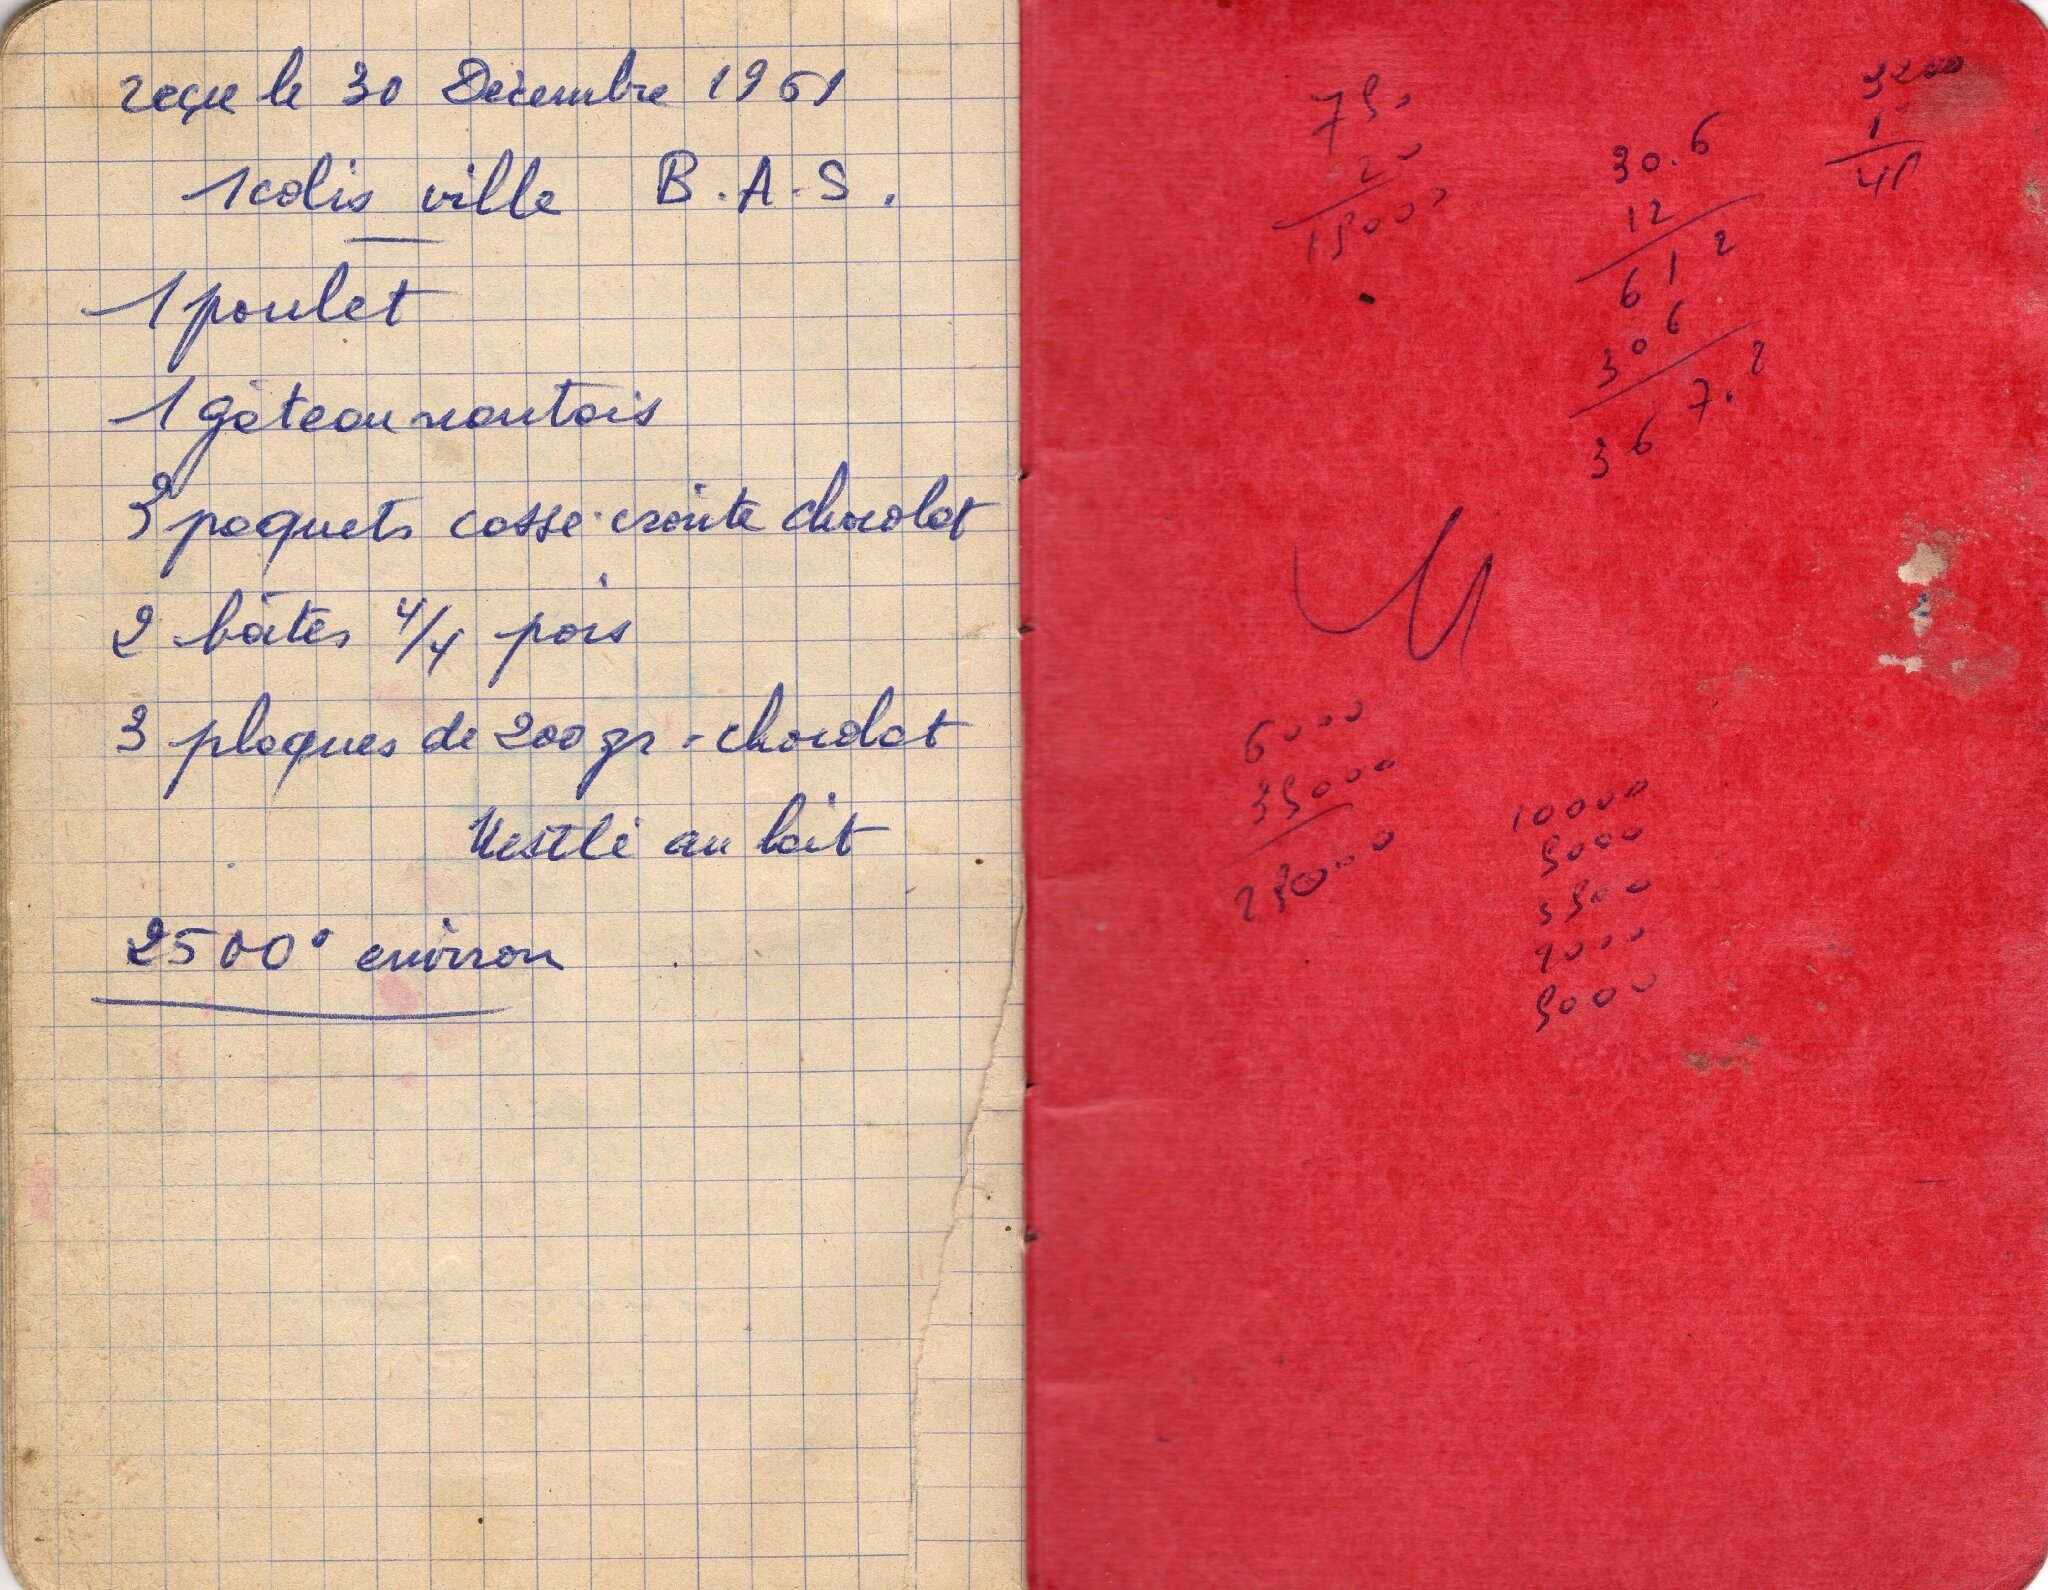 reçu le 30 Décembre 1961
1 colis ville B.A.S.
1 poulet
1 gâteau nantais
3 paquets casse-croûte chocolat
2 boîtes 4/4 pois
3 plaques de 200 gr - chocolat
Nestlé au lait
2500° environ
750
2
15000
30.6
12
612
306
367.2
6000
10000
5000
5000